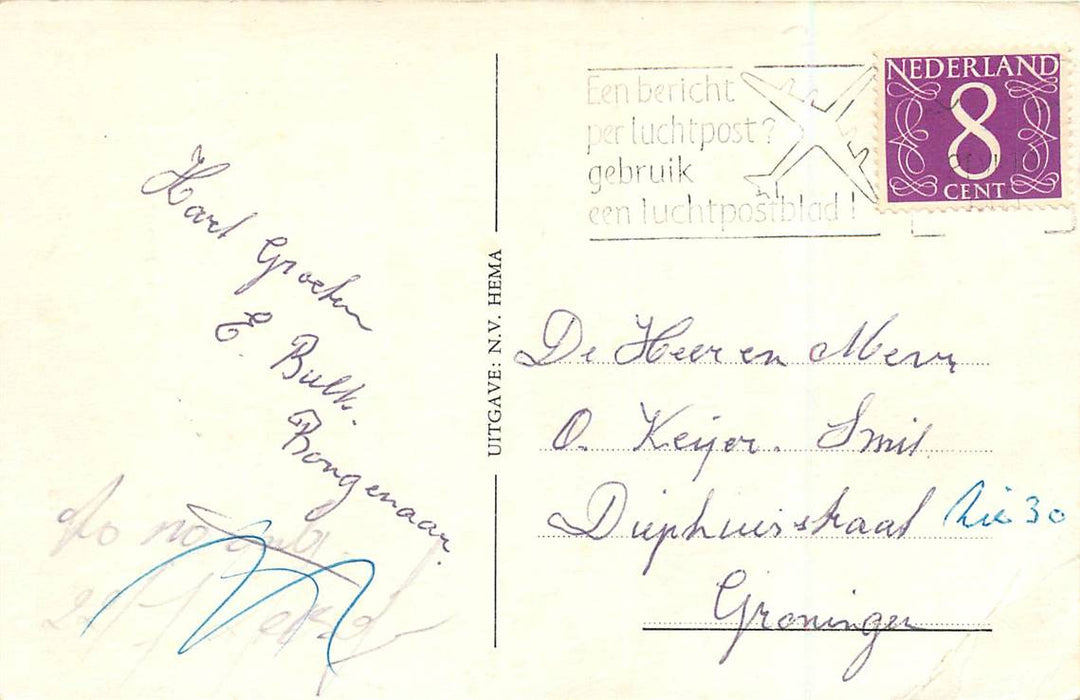 Een bericht
per luchtpost?
gebruik
een luchtpostblad!
NEDERLAND
8
CENT
Hart Groeten
E. Bulk.
Bongenaar.
UITGAVE: N.V. HEMA
De Heer en Mevr
O. Keijer. Smit.
Diephuisstraat
30
Groningen